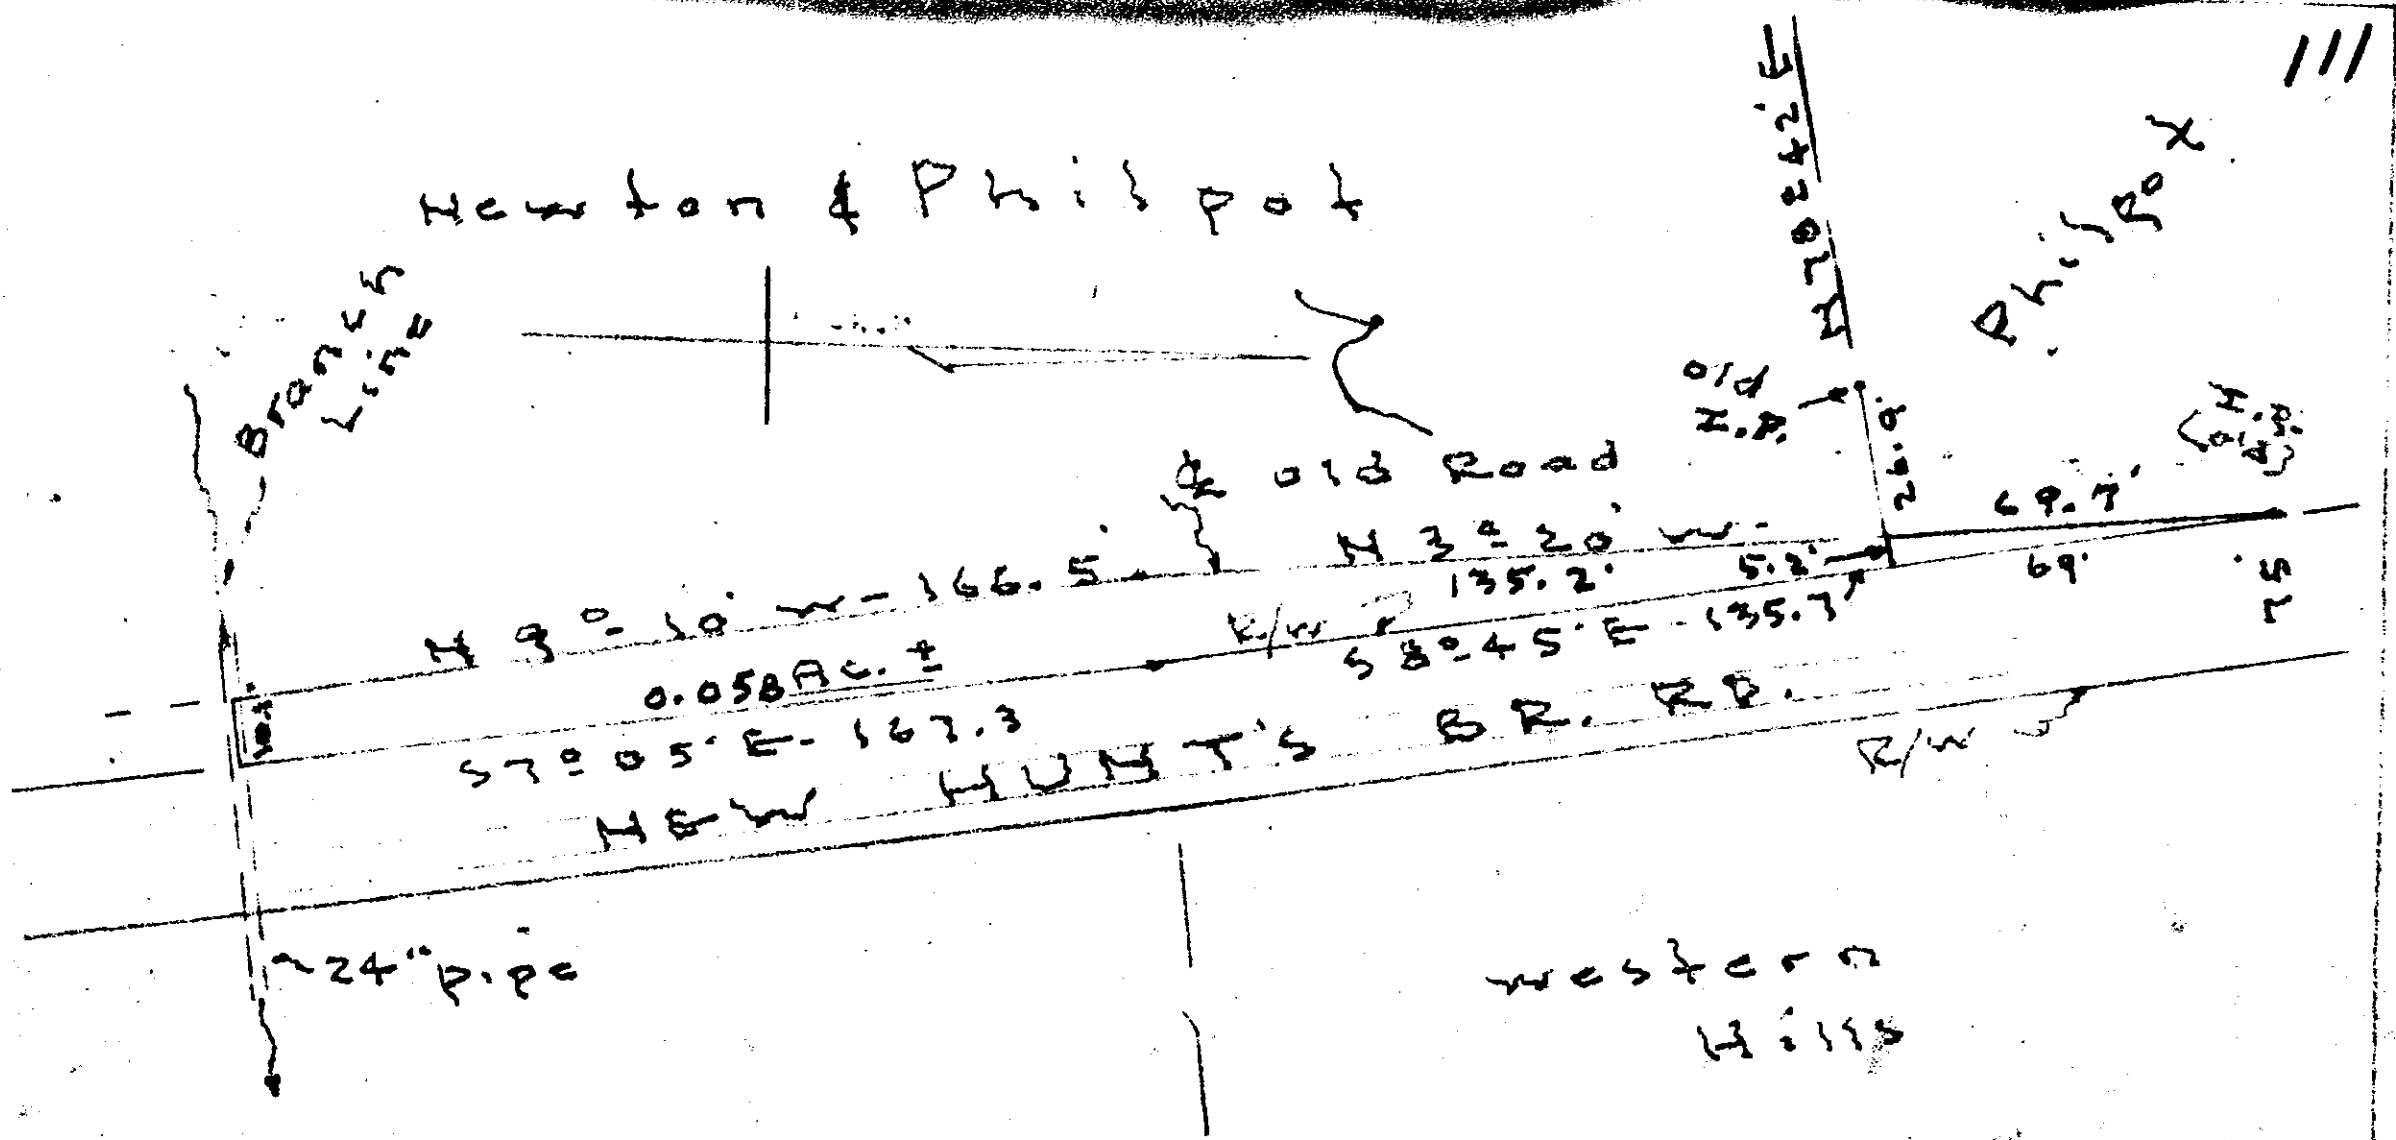 111
Newton & Philpot
N78°42'E
Phil Box
Branch
Line
old
I.P.
20.9'
I.P.
(old)
℄ old Road
69.7'
N 3° 20' W -
135.2'
5.2'
69'
N 9° 10' W - 166.5'
R/W
S 8° 45' E - 135.7'
0.058 Ac. ±
S 7° 05' E - 167.3
NEW HUNT'S BR. RD.
R/W
~24" pipe
Western
Hills